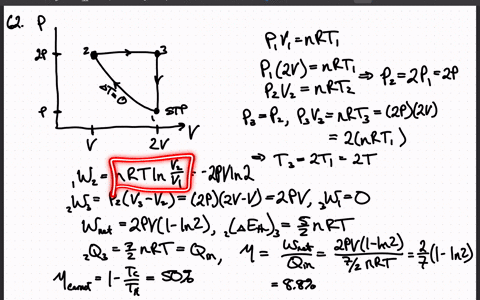 62. P
2P
2
3
ΔT=0
P
1
STP
V
2V
V
P₁V₁=nRT₁
P₁(2V)=nRT₁
P₂V₂=nRT₂
⇒ P₂=2P₁=2P
P₃=P₂, P₃V₃=nRT₃=(2P)(2V)
=2(nRT₁)
⇒ T₃=2T₁=2T
₁W₂=nRT ln V₂/V₁=-2PVln2
₂W₃=P₂(V₃-V₂)=(2P)(2V-V)=2PV, ₃W₁=0
Wnet=2PV(1-ln2), ₂(ΔEth)₃=5/2 nRT
₂Q₃=7/2 nRT=Qin, η=Wnet/Qin=2PV(1-ln2)/(7/2 nRT)=2/7(1-ln2)
ηcarnot=1-Tc/TH=50%
=8.8%